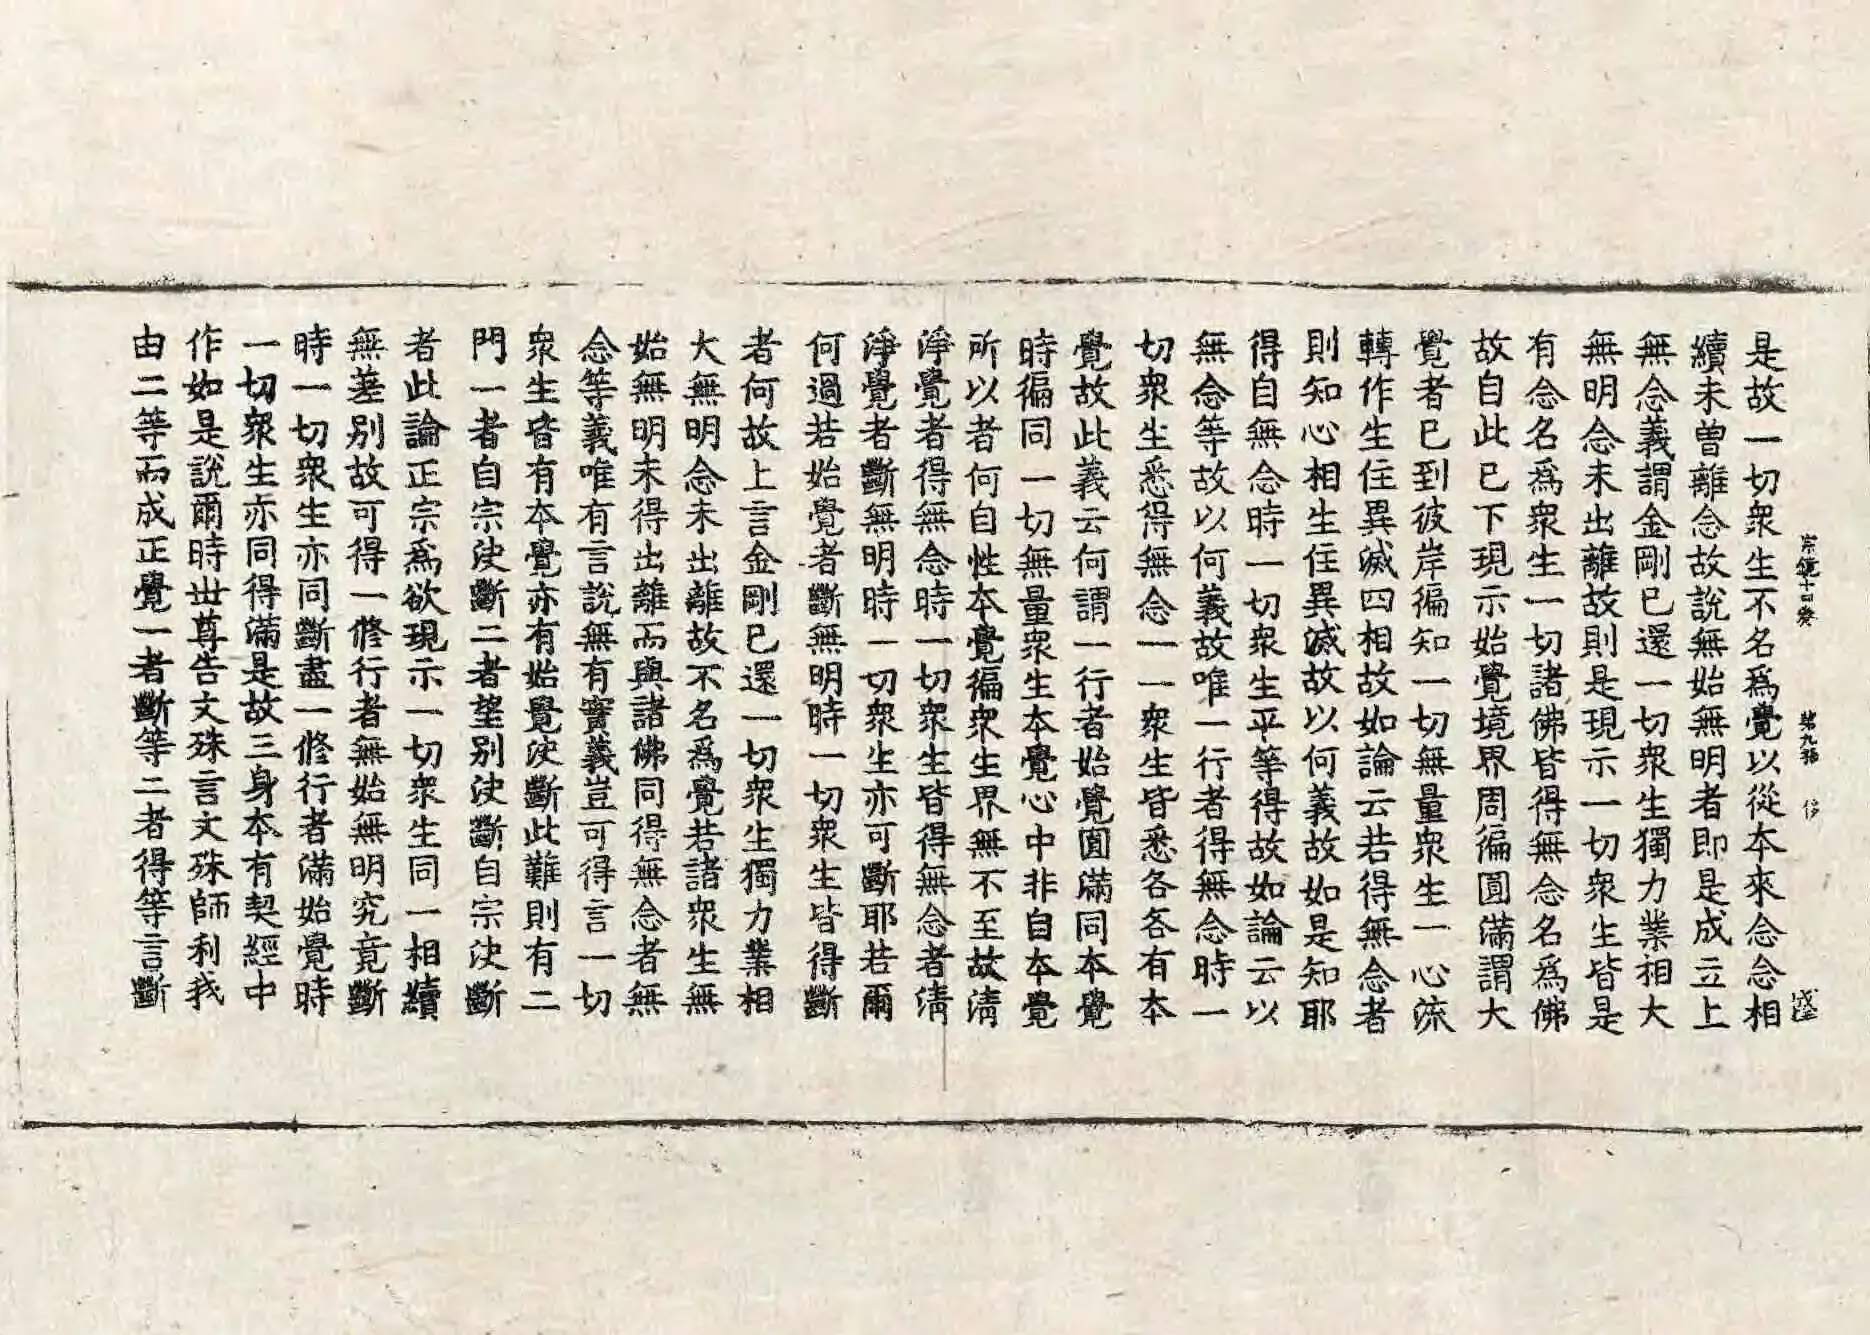 宗鏡十四卷 第九張 俊
是故一切衆生不名爲覺以從本來念念相
續未曾離念故說無始無明者即是成立上
無念義謂金剛已還一切衆生獨力業相大
無明念未出離故則是現示一切衆生皆是
有念名爲衆生一切諸佛皆得無念名爲佛
故自此已下現示始覺境界周徧圓滿謂大
覺者已到彼岸徧知一切無量衆生一心流
轉作生住異滅四相故如論云若得無念者
則知心相生住異滅故以何義故如是知耶
得自無念時一切衆生平等得故如論云以
無念等故以何義故唯一行者得無念時一
切衆生悉得無念一一衆生皆悉各各有本
覺故此義云何謂一行者始覺圓滿同本覺
時徧同一切無量衆生本覺心中非自本覺
所以者何自性本覺徧衆生界無不至故淸
淨覺者得無念時一切衆生皆得無念者淸
淨覺者斷無明時一切衆生亦可斷耶若爾
何過若始覺者斷無明時一切衆生皆得斷
者何故上言金剛已還一切衆生獨力業相
大無明念未出離故不名爲覺若諸衆生無
始無明未得出離而與諸佛同得無念者無
念等義唯有言說無有實義豈可得言一切
衆生皆有本覺亦有始覺決斷此難則有二
門一者自宗決斷二者望別決斷自宗決斷
者此論正宗爲欲現示一切衆生同一相續
無差別故可得一修行者無始無明究竟斷
時一切衆生亦同斷盡一修行者滿始覺時
一切衆生亦同得滿是故三身本有契經中
作如是說爾時世尊告文殊言文殊師利我
由二等而成正覺一者斷等二者得等言斷